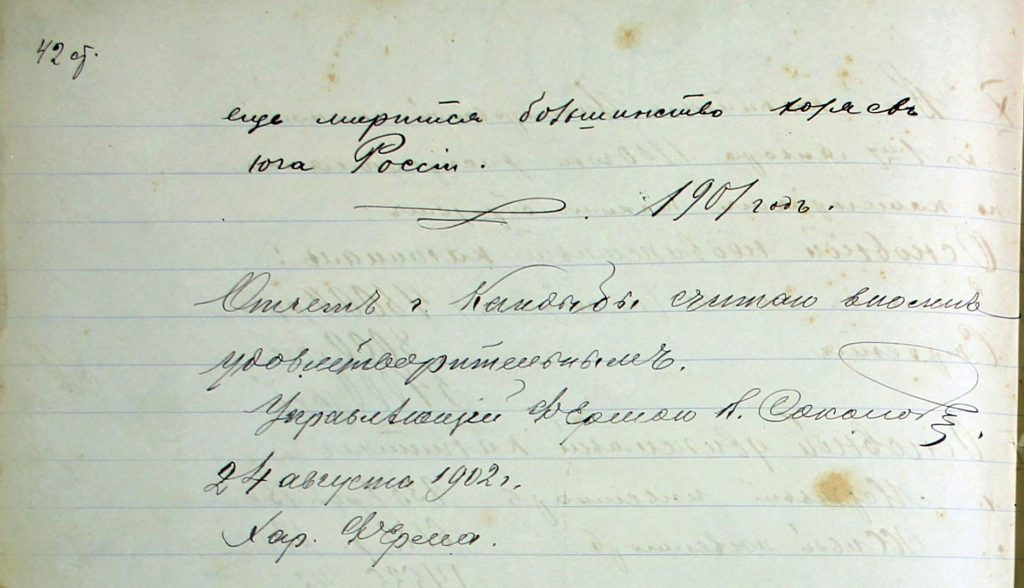 42 ст.
еще мирится большинство хозяевъ
юга Россіи.
1901 годъ.
Отчетъ г. Кандыбы считаю вполнѣ
удовлетворительнымъ.
Управляющій Фермою Соколов
24 августа 1902 г.
Хар. Ферма.